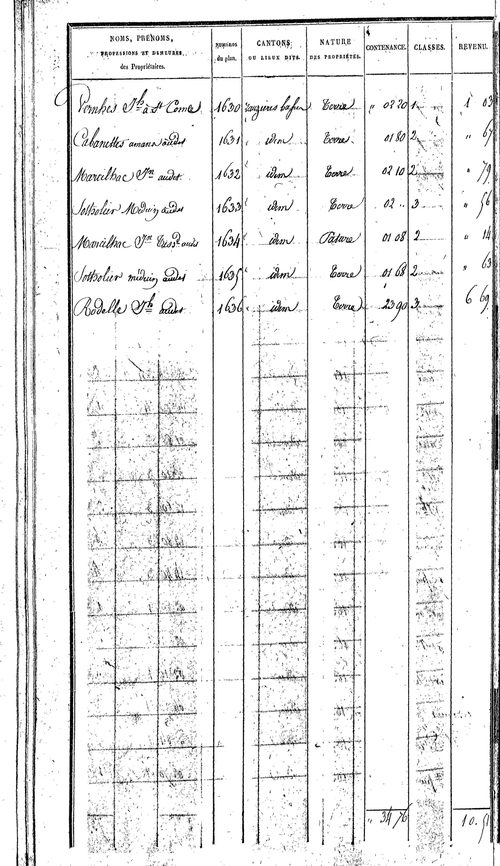 NOMS, PRÉNOMS, PROFESSIONS ET DEMEURES des Propriétaires. NUMÉROS du plan. CANTONS OU LIEUX DITS. NATURE DES PROPRIÉTÉS. CONTENANCE. CLASSES. REVENU.
à St Come 1630 Terre " 02 20 1 1 03
Cabanettes amans audit 1631 idem Terre 01 80 2 " 67
Marcilhac audit 1632 idem Terre 02 10 2 " 79
Sottolier Médecin audit 1633 idem Terre 02 " 3 " 56
Marcilhac audit 1634 idem Pature 01 08 2 " 14
Sottolier médecin audit 1635 idem Terre 01 68 2 " 63
Rodelle audit 1636 idem Terre 23 90 3 6 69
" 34 76 10. 51